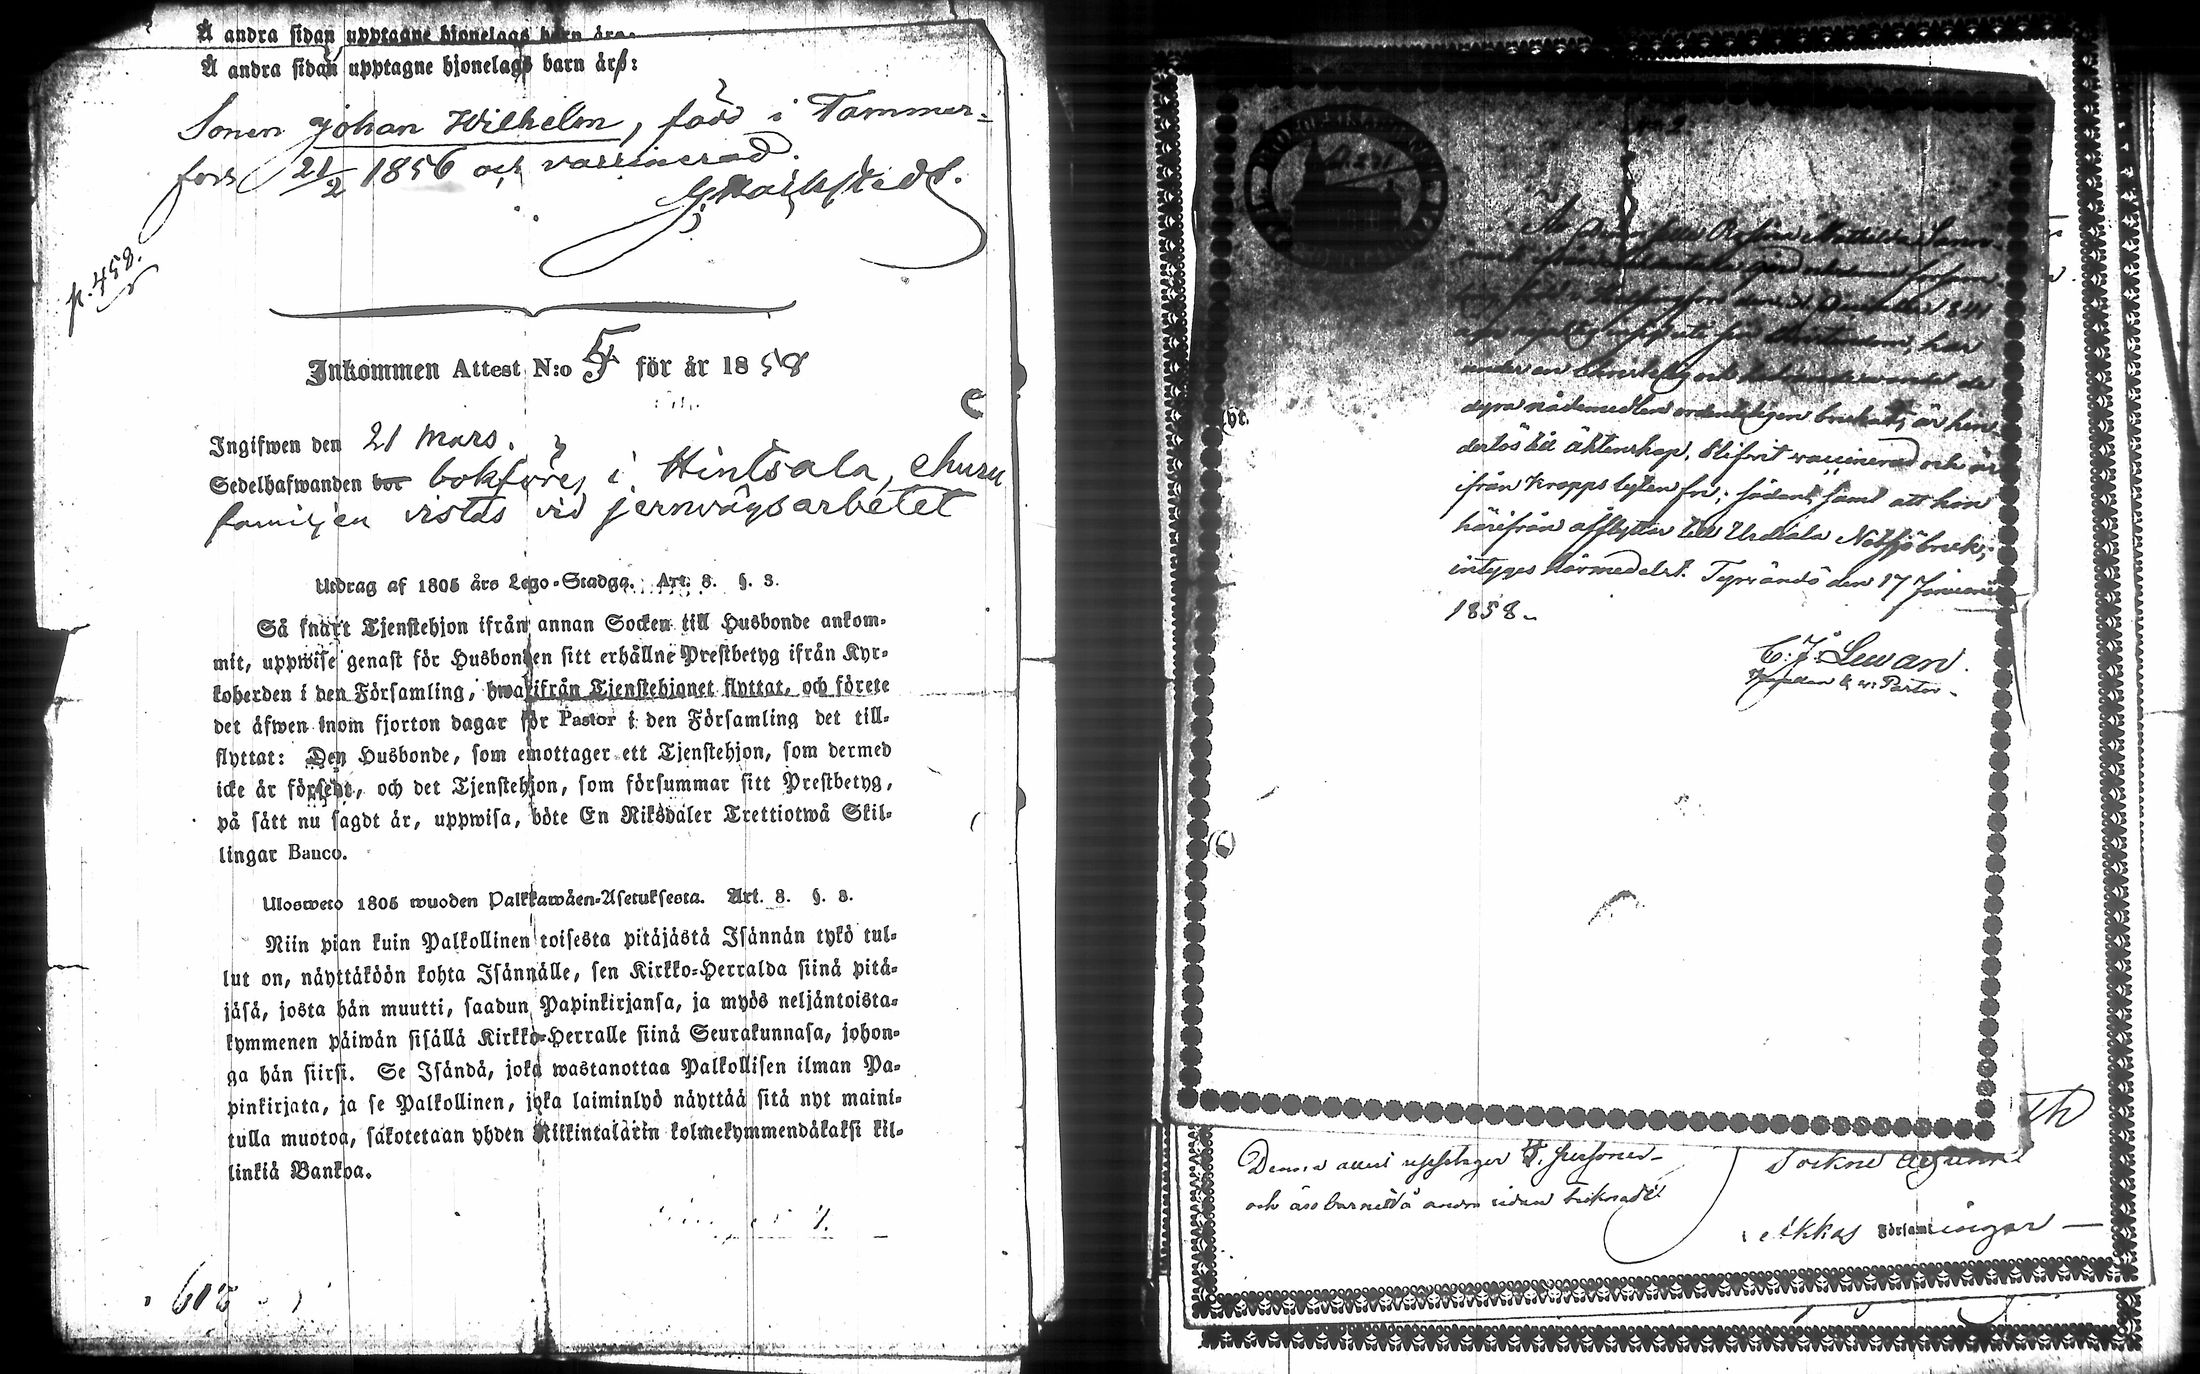 Å andra sidan upptagne hjonelags barn äro:
Å andra sidan upptagne hjonelags barn äro:
Sonen Johan Wilhelm, född i Tammer-
fors 21/2 1856 och vaccinerad.
p. 458.
Inkommen Attest N:o 5 för år 1858
Ingifwen den 21 Mars.
Sedelhafwanden bor bokföres i Hintsala, ehuru
familjen vistas vid jernvägsarbetet
Utdrag af 1805 års Lego-Stadga. Art. 8. §. 3.
Så snart Tjenstehjon ifrån annan Socken till Husbonde ankom-
mit, uppwise genast för Husbonden sitt erhållne Prestbetyg ifrån Kyr-
koherden i den Församling, hwarifrån Tjenstehjonet flyttat, och förete
det äfwen inom fjorton dagar för Pastor i den Församling det till-
flyttat: Den Husbonde, som emottager ett Tjenstehjon, som dermed
icke är försedt, och det Tjenstehjon, som försummar sitt Prestbetyg,
på sätt nu sagdt är, uppwisa, böte En Riksdaler Trettiotwå Skil-
lingar Banco.
Ulosweto 1805 wuoden Palkkawäen-Asetuksesta. Art. 8. §. 3.
Niin pian kuin Palkollinen toisesta pitäjästä Isännän tykö tul-
lut on, näyttäköön kohta Isännälle, sen Kirkko-Herralda siinä pitä-
jäsä, josta hän muutti, saadun Papinkirjansa, ja myös neljäntoista-
kymmenen päiwän sisällä Kirkko-Herralle siinä Seurakunnasa, johon-
ga hän siirsi. Se Isändä, joka wastanottaa Palkollisen ilman Pa-
pinkirjata, ja se Palkollinen, joka laiminlyö näyttää sitä nyt maini-
tulla muotoa, sakotetaan yhden Riikintalarin kolmekymmendäkaksi kil-
linkiä Bankoa.
618
född i den 21 December 1841
äger nöjaktig insigt i sin Christendom, har
under en Christelig och de
dyra nådemedlen ordentligen brukat, är hin-
derlös till äktenskap, blifvit vaccinerad och är
ifrån kroppslyten fri; sådant, samt att hon
härifrån afflyttar till Urdiala Notsjö bruk,
intygas härmedelst. Tyrvändö den 17 Januari
1858.
C. J. Lewan.
Kapellan & v. Pastor.
Denna attest upptager 4. personer
och äro barnen å andra sidan tecknade
Sockne
Akkas Församlingar